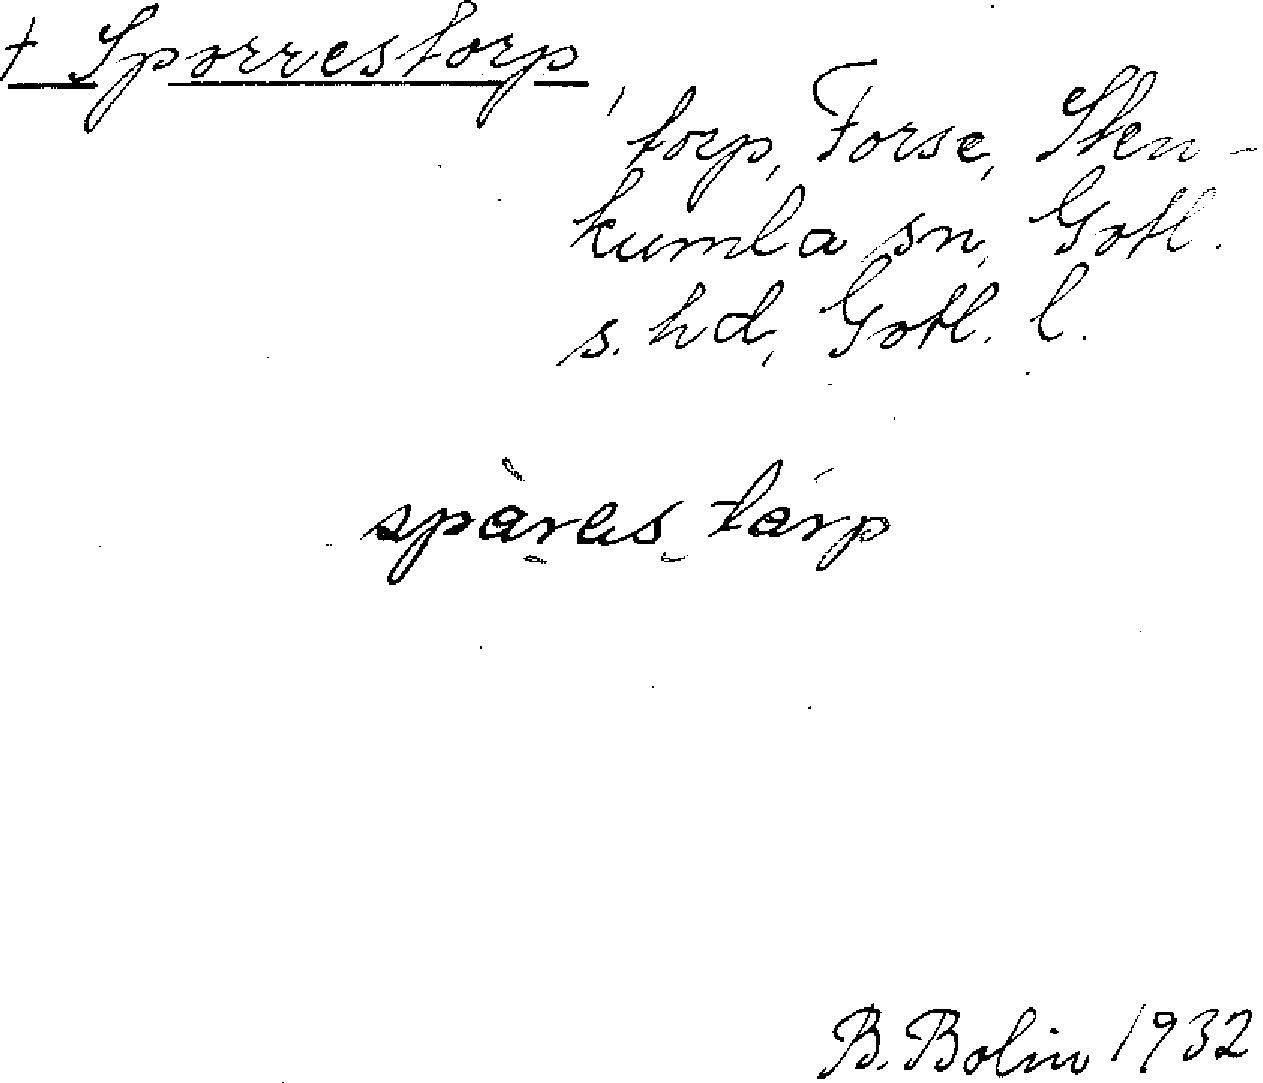 † Sporrestorp,
torp, Forse, Sten-
kumla sn, Gotl.
s. hd, Gotl. l.
spàres tárp
B. Bolin 1932